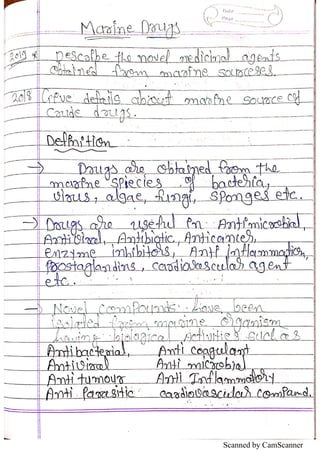 Marine Drugs
2019 * Describe the novel medicinal agents
obtained from marine sources.
2018 Give details about marine source of
Crude drugs.
Definition
→ Drugs are obtained from the
marine species of bacteria,
virus, algae, fungi, sponges etc.
→ Drugs are useful in Antimicrobial,
Antiviral, Antibiotic, Anticancer,
enzyme inhibitors, Anti inflammation,
Prostaglandins, cardiovascular agent
etc.
→ Novel compounds have been
isolated from marine organism
having biological Activities such as
Antibacterial, Anti coagulant
Antiviral Anti microbial
Anti tumour Anti Inflammatory
Anti Parasitic cardiovascular compand.
Scanned by CamScanner